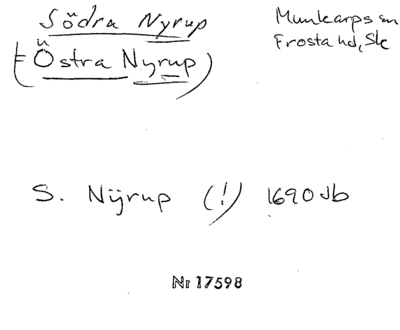 Södra Nyrup
(= Östra Nyrup)
Munkarps sn
Frosta hd, Sk
S. Nÿrup (!) 1690 Jb
Nr 17598